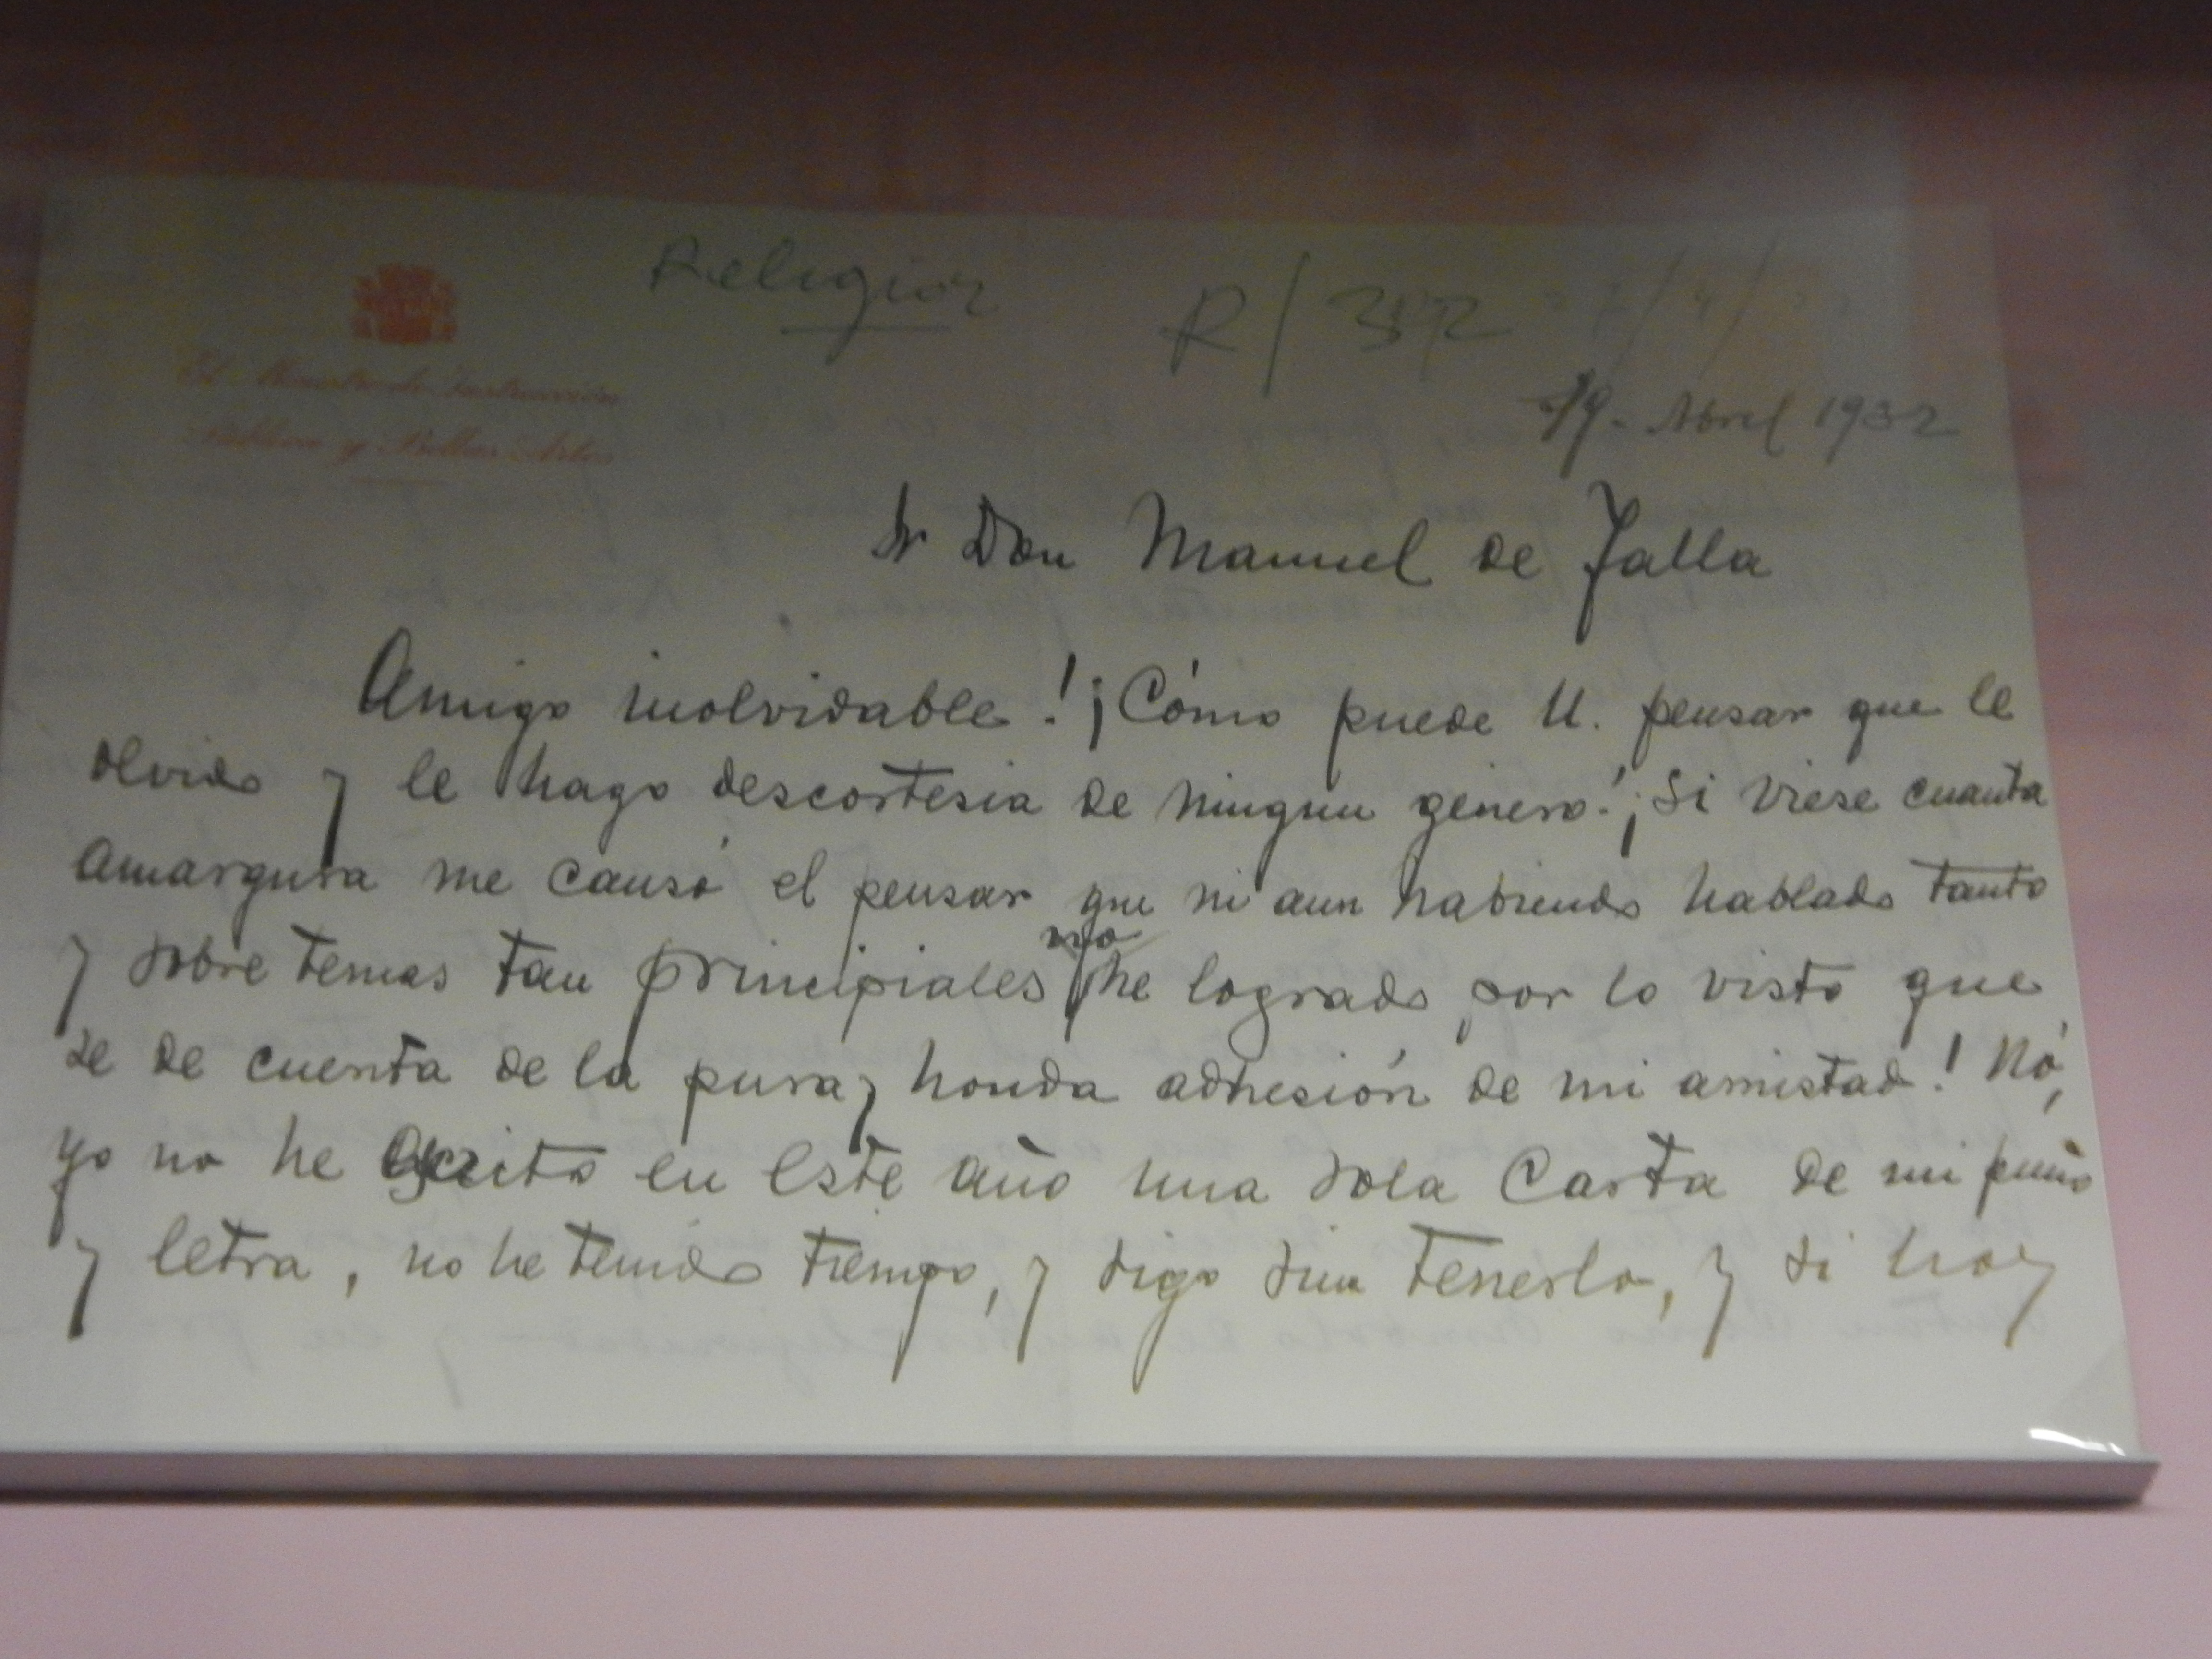 Religión
R/
El Ministro de Instrucción
Pública y Bellas Artes
19. Abril 1932
Sr Don Manuel de Falla
Amigo inolvidable! ¡Cómo puede U. pensar que le
olvido y le hago descortesia de ningun género! ¡Si viese cuanta
amargura me causó el pensar que ni aun habiendo hablado tanto
y sobre temas tan principiales no he logrado por lo visto que
se de cuenta de la pura y honda adhesión de mi amistad! Nó,
yo no he escrito en este año una sola carta de mi puño
y letra, no he tenido tiempo, y sigo sin tenerlo, y si hoy